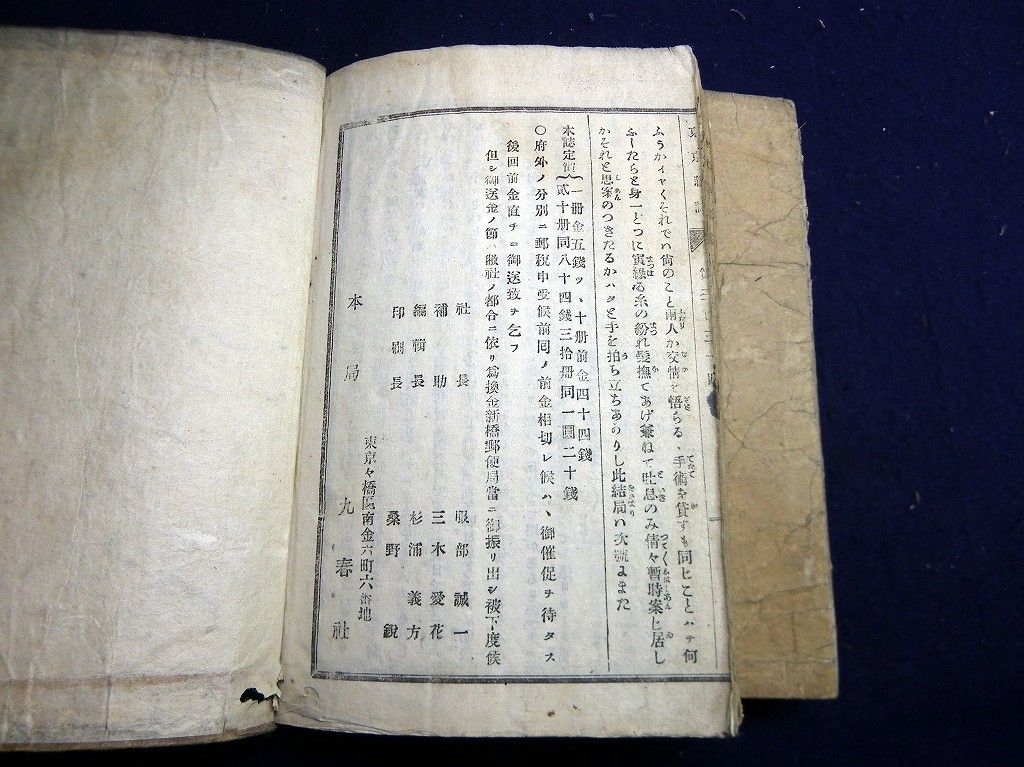 東京新誌
ふうかイヤくそれでハ尚のこと兩人か交情を悟らるゝ手術を貸すも同じことハテ何
ふしたらと身一とつに寅縁る糸の紛れ髮撫てあげ兼ねて吐息のみ倩々暫時案じ居し
かそれと思案のつきたるかハタと手を拍ち立ちあかりし此結局ハ次號よまた
本誌定價一册金五錢ツヽ、十册前金四十四錢
貳十册同八十四錢三拾册同一圓二十錢
○府外ノ分別ニ郵税申受候前同ノ前金相切レ候ハヽ御催促ヲ待タス
後回前金直チニ御送致ヲ乞フ
但シ御送金ノ節ハ敝社ノ都合ニ依リ爲換金新橋郵便局當ニ御振リ出シ被下度候
社長 服部誠一
補助 三木愛花
編輯長 杉浦義方
印刷長 桑野鋭
東京々橋區南金六町六番地
本局 九春社